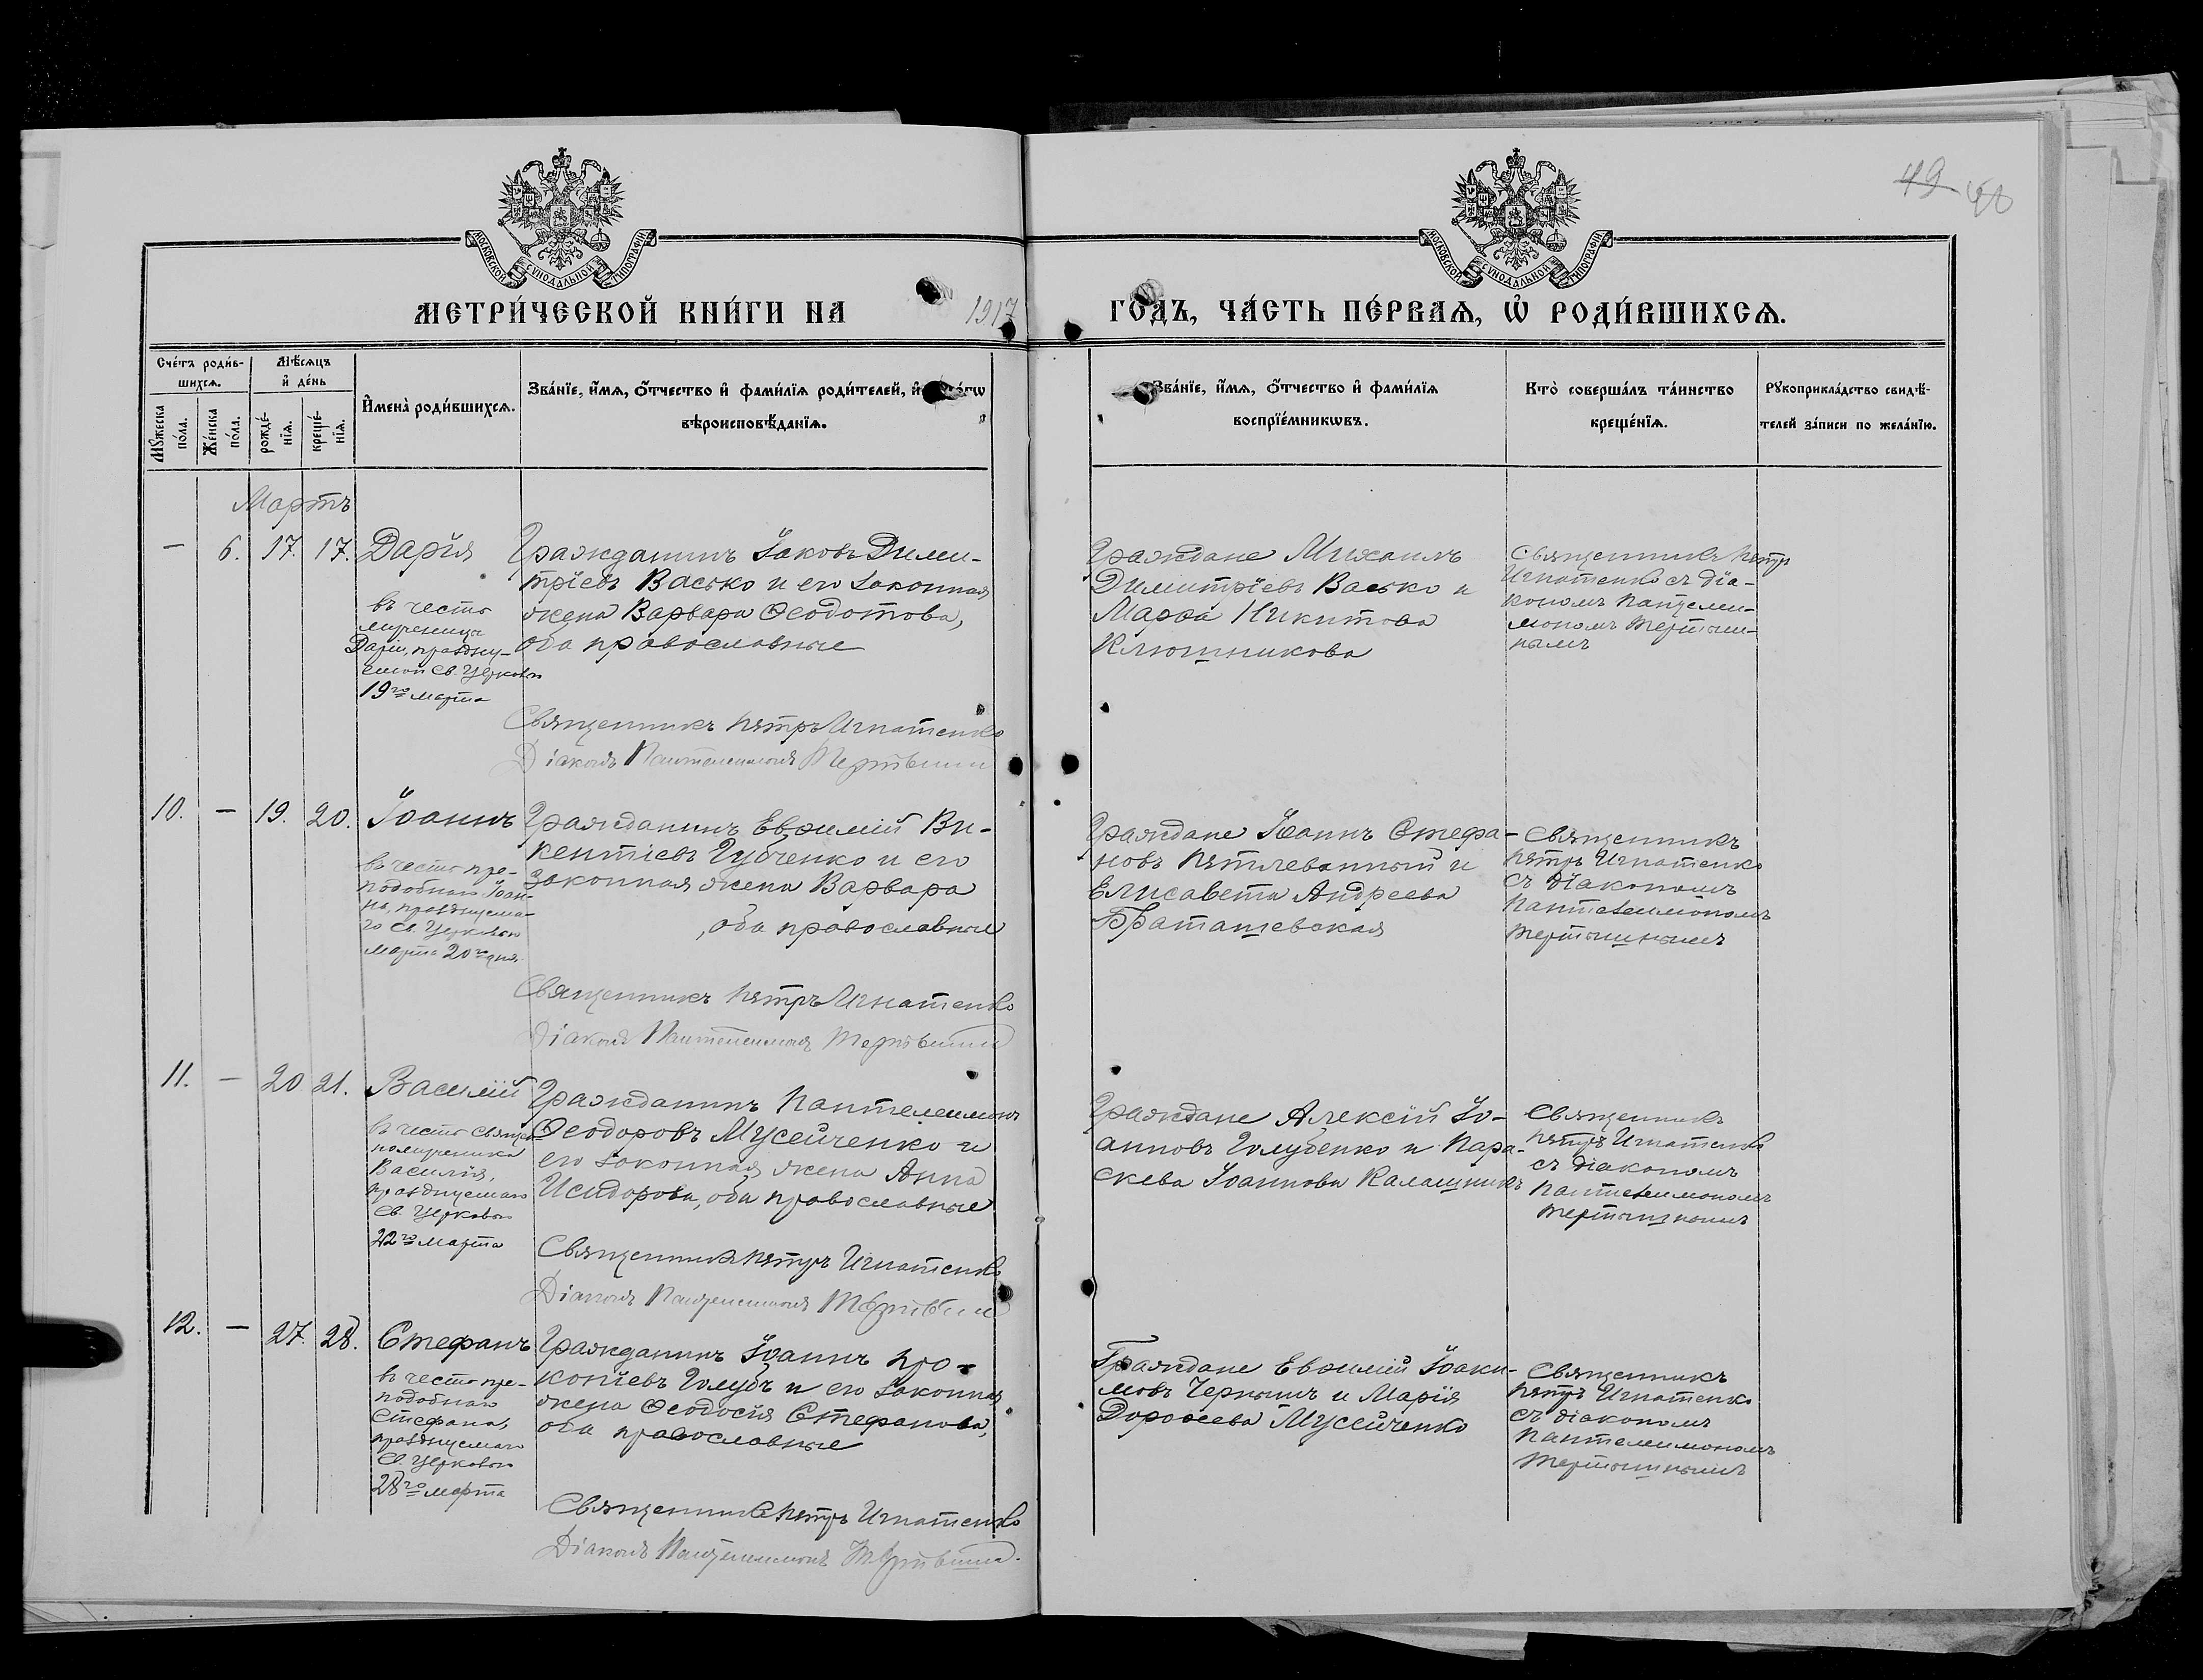 49 50
МОСКОВСКОЙ СѴНОДАЛЬНОЙ ТИПОГРАФІИ
МОСКОВСКОЙ СѴНОДАЛЬНОЙ ТИПОГРАФІИ
МЕТРИ́ЧЕСКОЙ КНИ́ГИ НА 1917 ГО́ДЪ, ЧА́СТЬ ПЕ́РВАѦ, Ѡ҆ РОДИ́ВШИХСѦ.
Сче́тъ роди́в-
шихсѧ.
Мꙋ́жеска по́ла.
Же́нска по́ла.
Мѣ́сѧцъ
и҆ де́нь
рожде́-
нїѧ.
креще́-
нїѧ.
И҆мена̀ роди́вшихсѧ.
Зва́нїе, и҆́мѧ, ѻ҆́тчество и҆ фами́лїѧ роди́телей, и҆
вѣроисповѣ́данїѧ.
Зва́нїе, и҆́мѧ, ѻ҆́тчество и҆ фами́лїѧ
воспрїе́мникѡвъ.
Кто̀ соверша́лъ та́инство
креще́нїѧ.
Рꙋкоприкла́дство свидѣ́-
телей за́писи по жела́нїю.
Мартъ
— 6. 17. 17. Дарія
въ честь
мученицы
Даріи, праздну-
емой св. Церковію
19го марта
Гражданинъ Іаковъ Дими-
тріевъ Васько и его законная
жена Варвара Ѳеодотова,
оба православные
Священникъ Петръ Игнатенко
Діаконъ Пантелеимонъ
Граждане Михаилъ
Димитріевъ Васько и
Марѳа Никитова
Клюшникова
Священникъ Петръ
Игнатенко съ діа-
кономъ Пантелеи-
мономъ Тертыш-
нымъ
10. — 19. 20. Іоаннъ
въ честь пре-
подобнаго Іоан-
на, празднуема-
го св. Церковію
марта 20го дня.
Гражданинъ Евѳимій Ви-
кентіевъ Губченко и его
законная жена Варвара
, оба православные
Священникъ Петръ Игнатенко
Діаконъ Пантелеимонъ
Граждане Іоаннъ Стефа-
новъ Петлеванный и
Елисавета Андреева
Браташевская
Священникъ
Петръ Игнатенко
съ діакономъ
Пантелеимономъ
Тертышнымъ
11. — 20 21. Василій
въ честь священ-
номученика
Василія,
празднуемаго
св. Церковію
22го марта
Гражданинъ Пантелеимонъ
Ѳеодоровъ Мусейченко и
его законная жена Анна
Исидорова, оба православные
Священникъ Петръ Игнатенко
Діаконъ Пантелеимонъ
Граждане Алексій Іо-
анновъ Голубенко и Пара-
скева Іоаннова Калашникъ
Священникъ
Петръ Игнатенко
съ діакономъ
Пантелеимономъ
Тертышнымъ
12. — 27. 28. Стефанъ
въ честь пре-
подобнаго
Стефана,
празднуемаго
св. Церковію
28го марта
Гражданинъ Іоаннъ Про-
копіевъ Голубъ и его законная
жена Ѳеодосія Стефанова,
оба православные
Священникъ Петръ Игнатенко
Діаконъ Пантелеимонъ
Граждане Евѳимій Іоаки-
мовъ Чернышъ и Марія
Дороѳеева Мусейченко
Священникъ
Петръ Игнатенко
съ діакономъ
Пантелеимономъ
Тертышнымъ